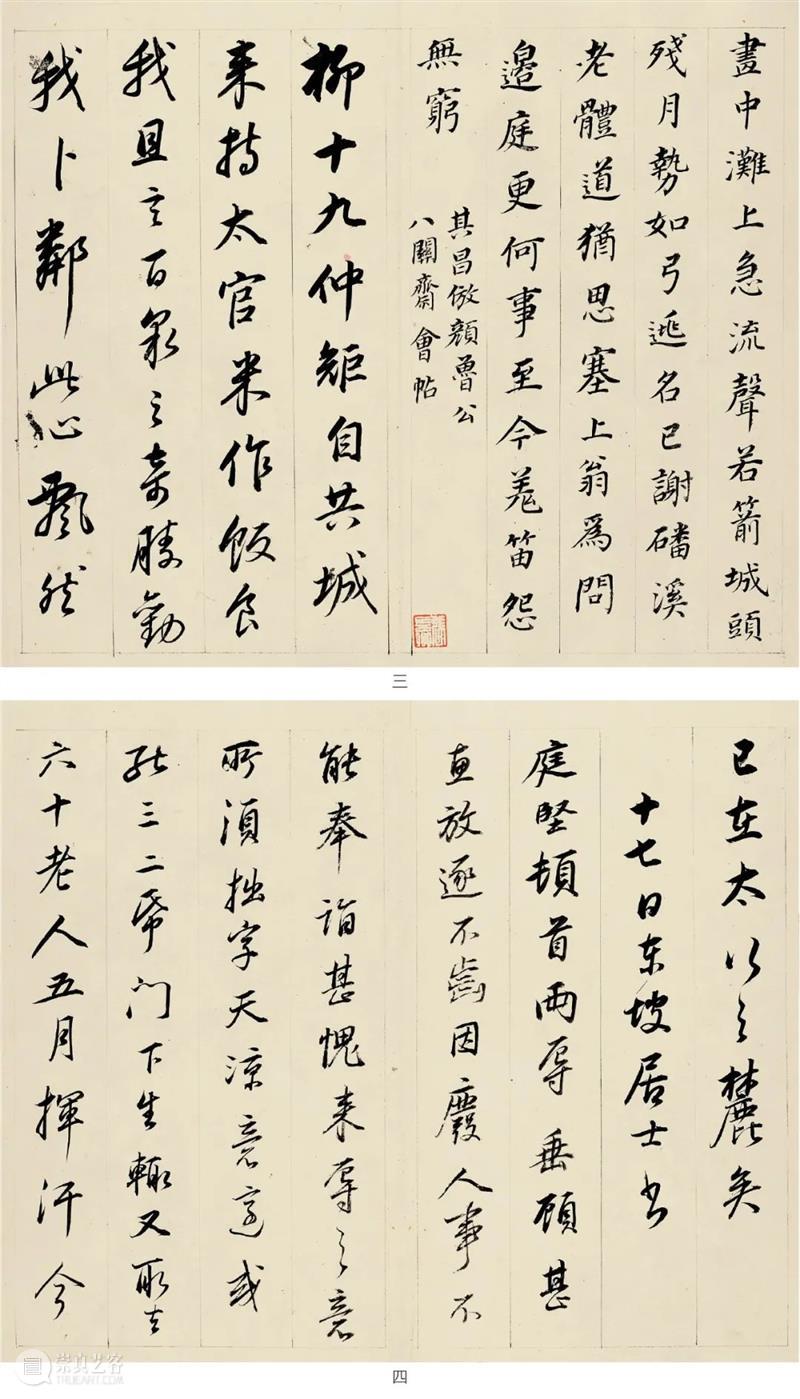 畫中灘上急流聲若箭城頭
殘月勢如弓逃名已謝磻溪
老體道猶思塞上翁爲問
邉庭更何事至今羌笛怨
無窮
其昌倣顔魯公
八關齋會帖
柳十九仲矩自共城
来持太官米作飯食
我且言百泉之奇勝勸
我卜鄰此心飄然
三
已在太行之麓矣
十七日东坡居士书
庭堅頓首兩辱垂顧甚
惠放逐不齒因廢人事不
能奉詣甚愧来辱之意
所須拙字天凉意適或
能三二帋門下生輙又取去
六十老人五月揮汗今
四
崇真艺客